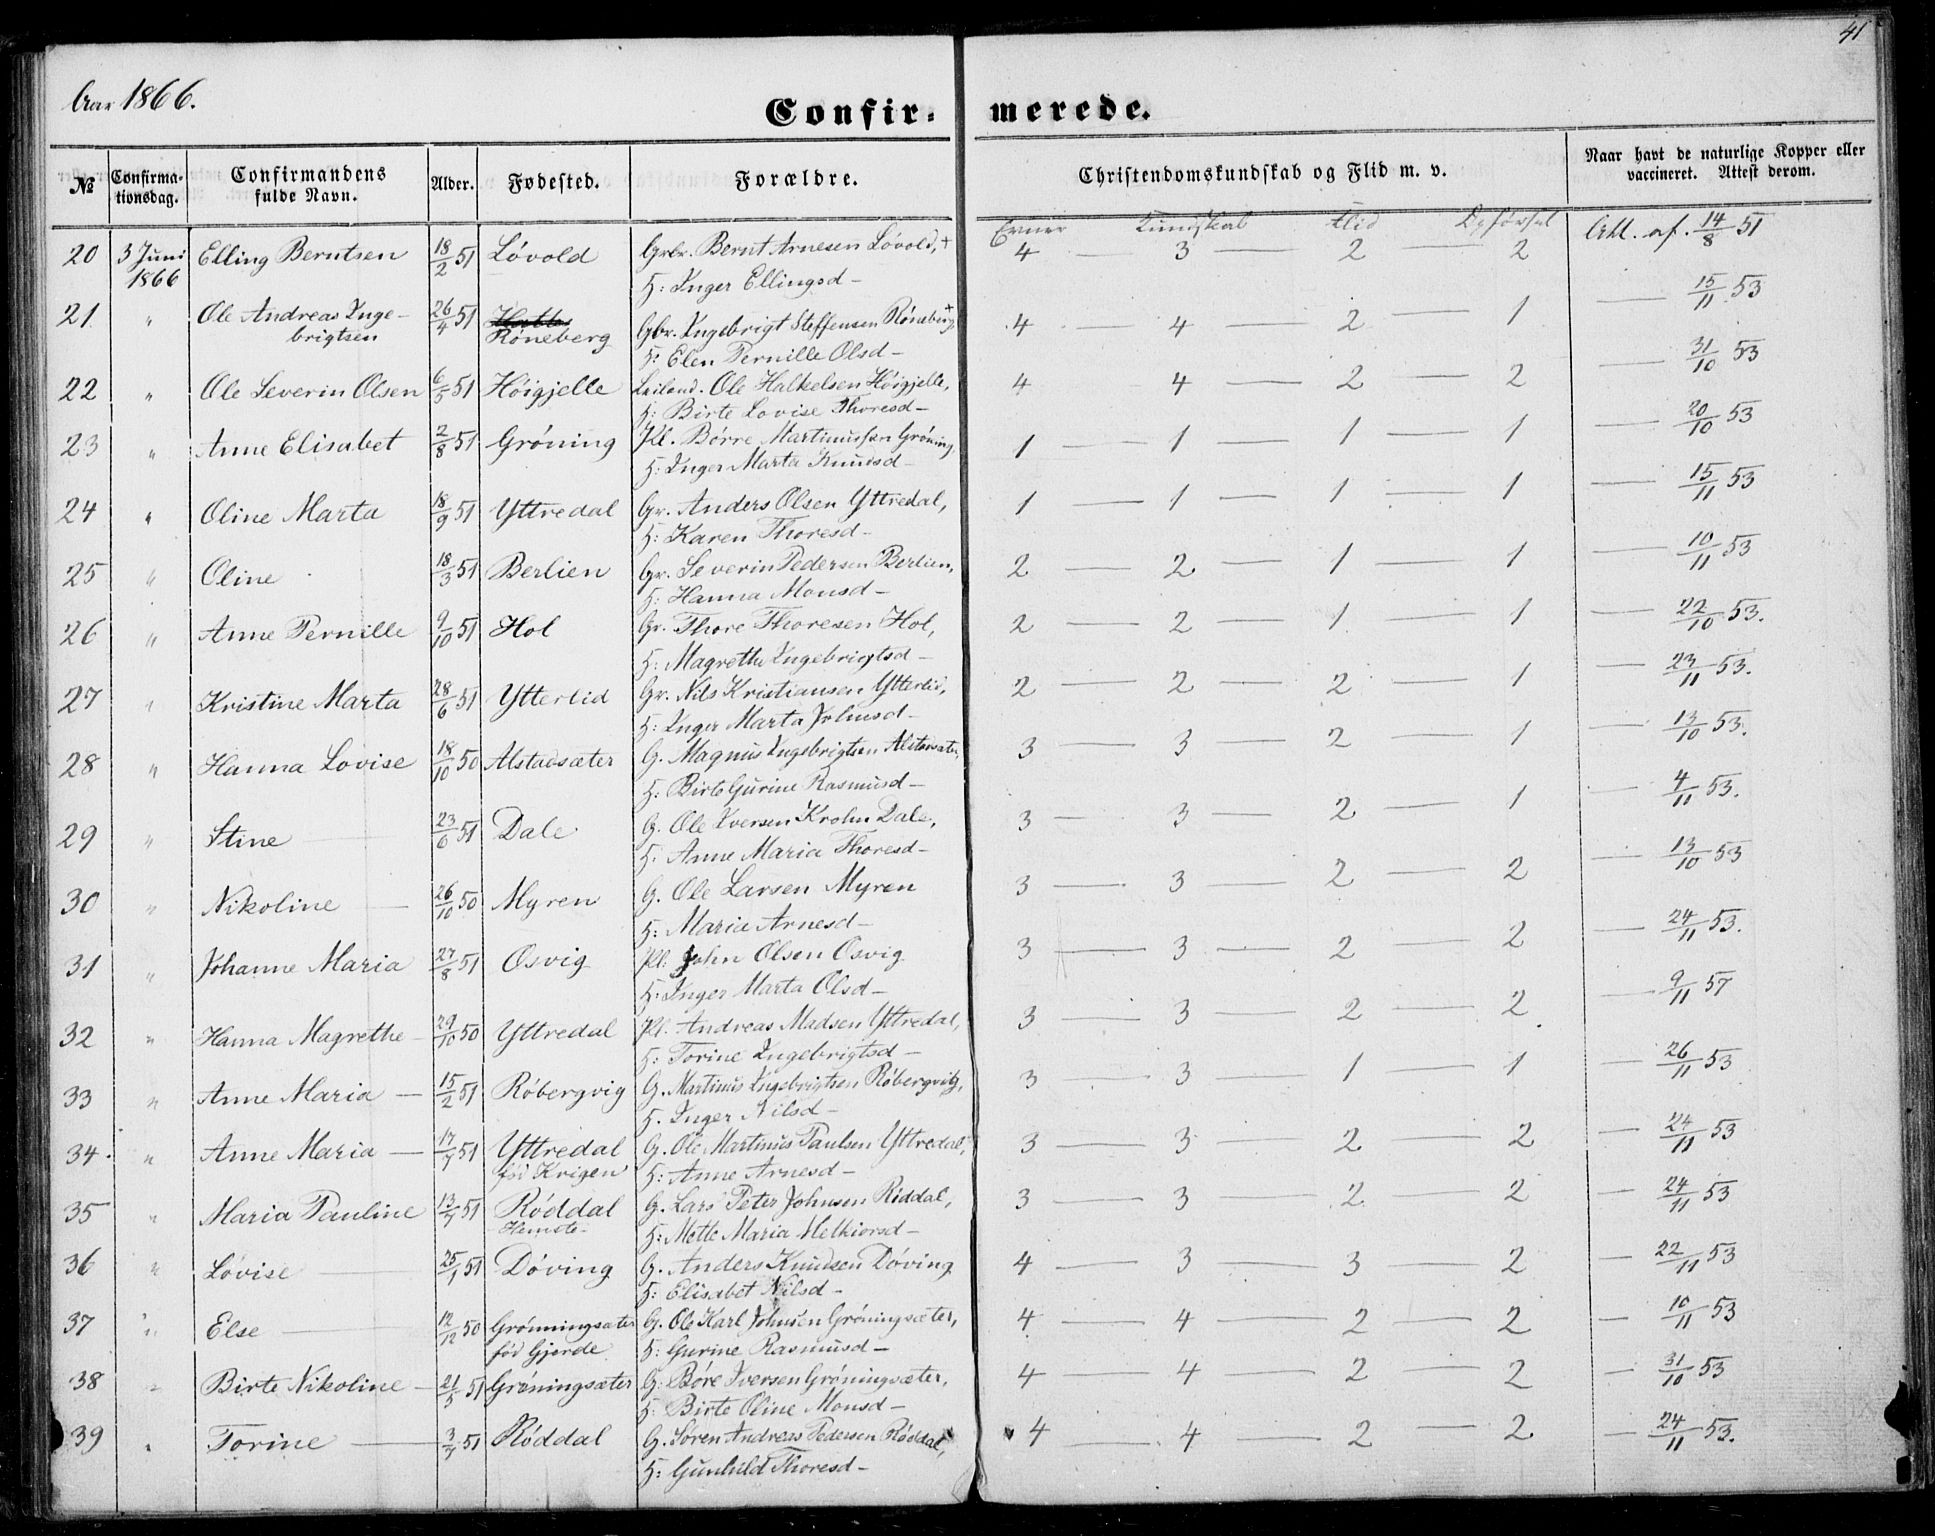 41
Aar 1866.
Confirmerede.
№ Confirmationsdag. Confirmandens fulde Navn. Alder. Fødested. Forældre. Christendomskundskab og Flid m. v. Naar havt de naturlige Kopper eller vaccineret. Attest derom.
Evner Kundskab Flid Opførsel
20 3 Juni 1866 Elling Berntsen 18/2 51 Lóvold Grbr. Bernt Arnesen Lóvold, + 4 — 3 — 2 — 2 Att. af. 14/8 51
H: Inger Ellingsd —
21 " Ole Andreas Inge- 26/4 51 Róneberg Gbr. Ingebrigt Steffensen Róneberg + 4 — 4 — 2 — 1 — 15/11 53
brigtsen H: Elen Pernille Olsd —
22 " Ole Severin Olsen 6/5 51 Hóigjelle Leiland. Ole Halkelsen Hóigjelle, 4 4 — 2 — 2 — 31/10 53
H: Birte Lovise Thoresd —
23 " Anne Elisabet 2/8 51 Gróning Pl. Bórre Martinussen Gróning, 1 — 1 — 1 — 1 — 20/10 53
H: Inger Marta Knudsd —
24 " Oline Marta 18/9 51 Yttredal Gr. Anders Olsen Yttredal, 1 — 1 — 1 — 1 — 15/11 53
H: Karen Thoresd —
25 " Oline 18/3 51 Berlien Gr. Severin Pedersen Berlien, 2 — 2 — 1 — 1 — 10/11 53
H: Hanna Monsd —
26 " Anne Pernille 9/10 51 Hol Gr. Thore Thoresen Hol, 2 — 2 — 1 — 1 — 22/10 53.
H: Magrethe Ingebrigtsd —
27 " Kristine Marta 28/6 51 Ytterlid Gr. Nils Kristiansen Ytterlid, 2 — 2 — 2 — 1 — 23/11 53.
H: Inger Marta Johnsd —
28 " Hanna Lovise 18/10 50 Alstadsæter G. Magnus Ingebrigtsen Alstadsæter, 3 — 3 — 2 — 1 — 13/10 53.
H: Birte Gurine Rasmusd —
29 " Stine — 23/6 51 Dale G. Ole Iversen Krohn Dale, 3 — 3 — 2 — 1 — 4/11 53.
H: Anne Maria Thoresd —
30 " Nikoline — 26/10 50 Myren G. Ole Larsen Myren 3 — 3 — 2 — 2 — 13/10 53
H: Maria Arnesd —
31 " Johanne Maria 27/8 51 Osvig Pl. John Olsen Osvig 3 — 3 — 2 — 2 — 24/11 53.
H: Inger Marta Olsd —
32 " Hanna Magrethe — 29/10 50 Yttredal Pl. Andreas Madsen Yttredal, 3 — 3 — 2 — 2 — 9/11 57
H: Torine Ingebrigtsd —
33 " Anne Maria — 15/2 51 Róbergvig G. Martinus Ingebrigtsen Róbergvig, 3 — 3 — 1 — 1 — 26/11 53
H. Inger Nilsd —
34. " Anne Maria — 17/7 51 Yttredal G. Ole Martinus Paulsen Yttredal, 3 — 3 — 2 — 2 — 24/11 53
fód Krigen H: Anne Arnesd —
35 " Maria Pauline 13/7 51 Róddal G. Lars Peter Johnsen Róddal, 3 — 3 — 2 — 2 — 24/11 53
H: Mette Maria Melkiorsd —
36 " Lovise — 25/1 51 Dóving G. Anders Knudsen Dóving 4 — 3 — 3 — 2 — 22/11 53
H: Elisabet Nilsd —
37 " Else — 12/12 50 Grónningsæter G. Ole Karl Johnsen Gróningsæter, 4 — 4 — 2 — 2 — 10/11 53
fód Gjerde H: Gurine Rasmusd —
38 " Birte Nikoline — 21/5 51 Gróningsæter G. Bóre Iversen Gróningsæter, 4 — 4 — 2 — 2 — 31/10 53
H: Birte Oline Monsd —
39 " Torine — 3/7 51 Róddal G. Sóren Andreas Pedersen Róddal, 4 — 4 — 2 — 2 — 24/11 53.
H: Gunhild Thoresd —